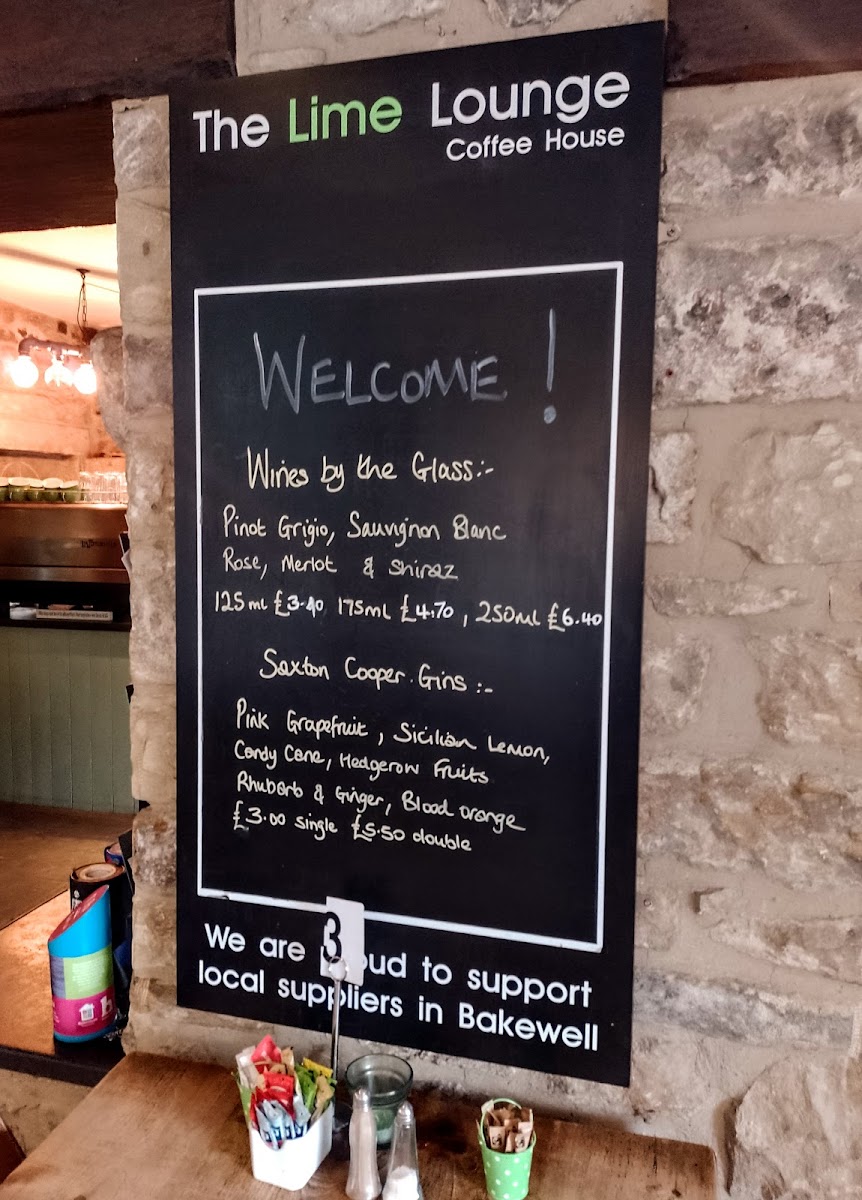 The Lime Lounge
Coffee House
WELCOME !
Wines by the Glass:-
Pinot Grigio, Sauvignon Blanc
Rose, Merlot & Shiraz
125ml £3.40 175ml £4.70, 250ml £6.40
Saxton Cooper Gins :-
Pink Grapefruit, Sicilian Lemon,
Candy Cane, Hedgerow Fruits
Rhubarb & Ginger, Blood orange
£3.00 single £5.50 double
3
We are proud to support
local suppliers in Bakewell